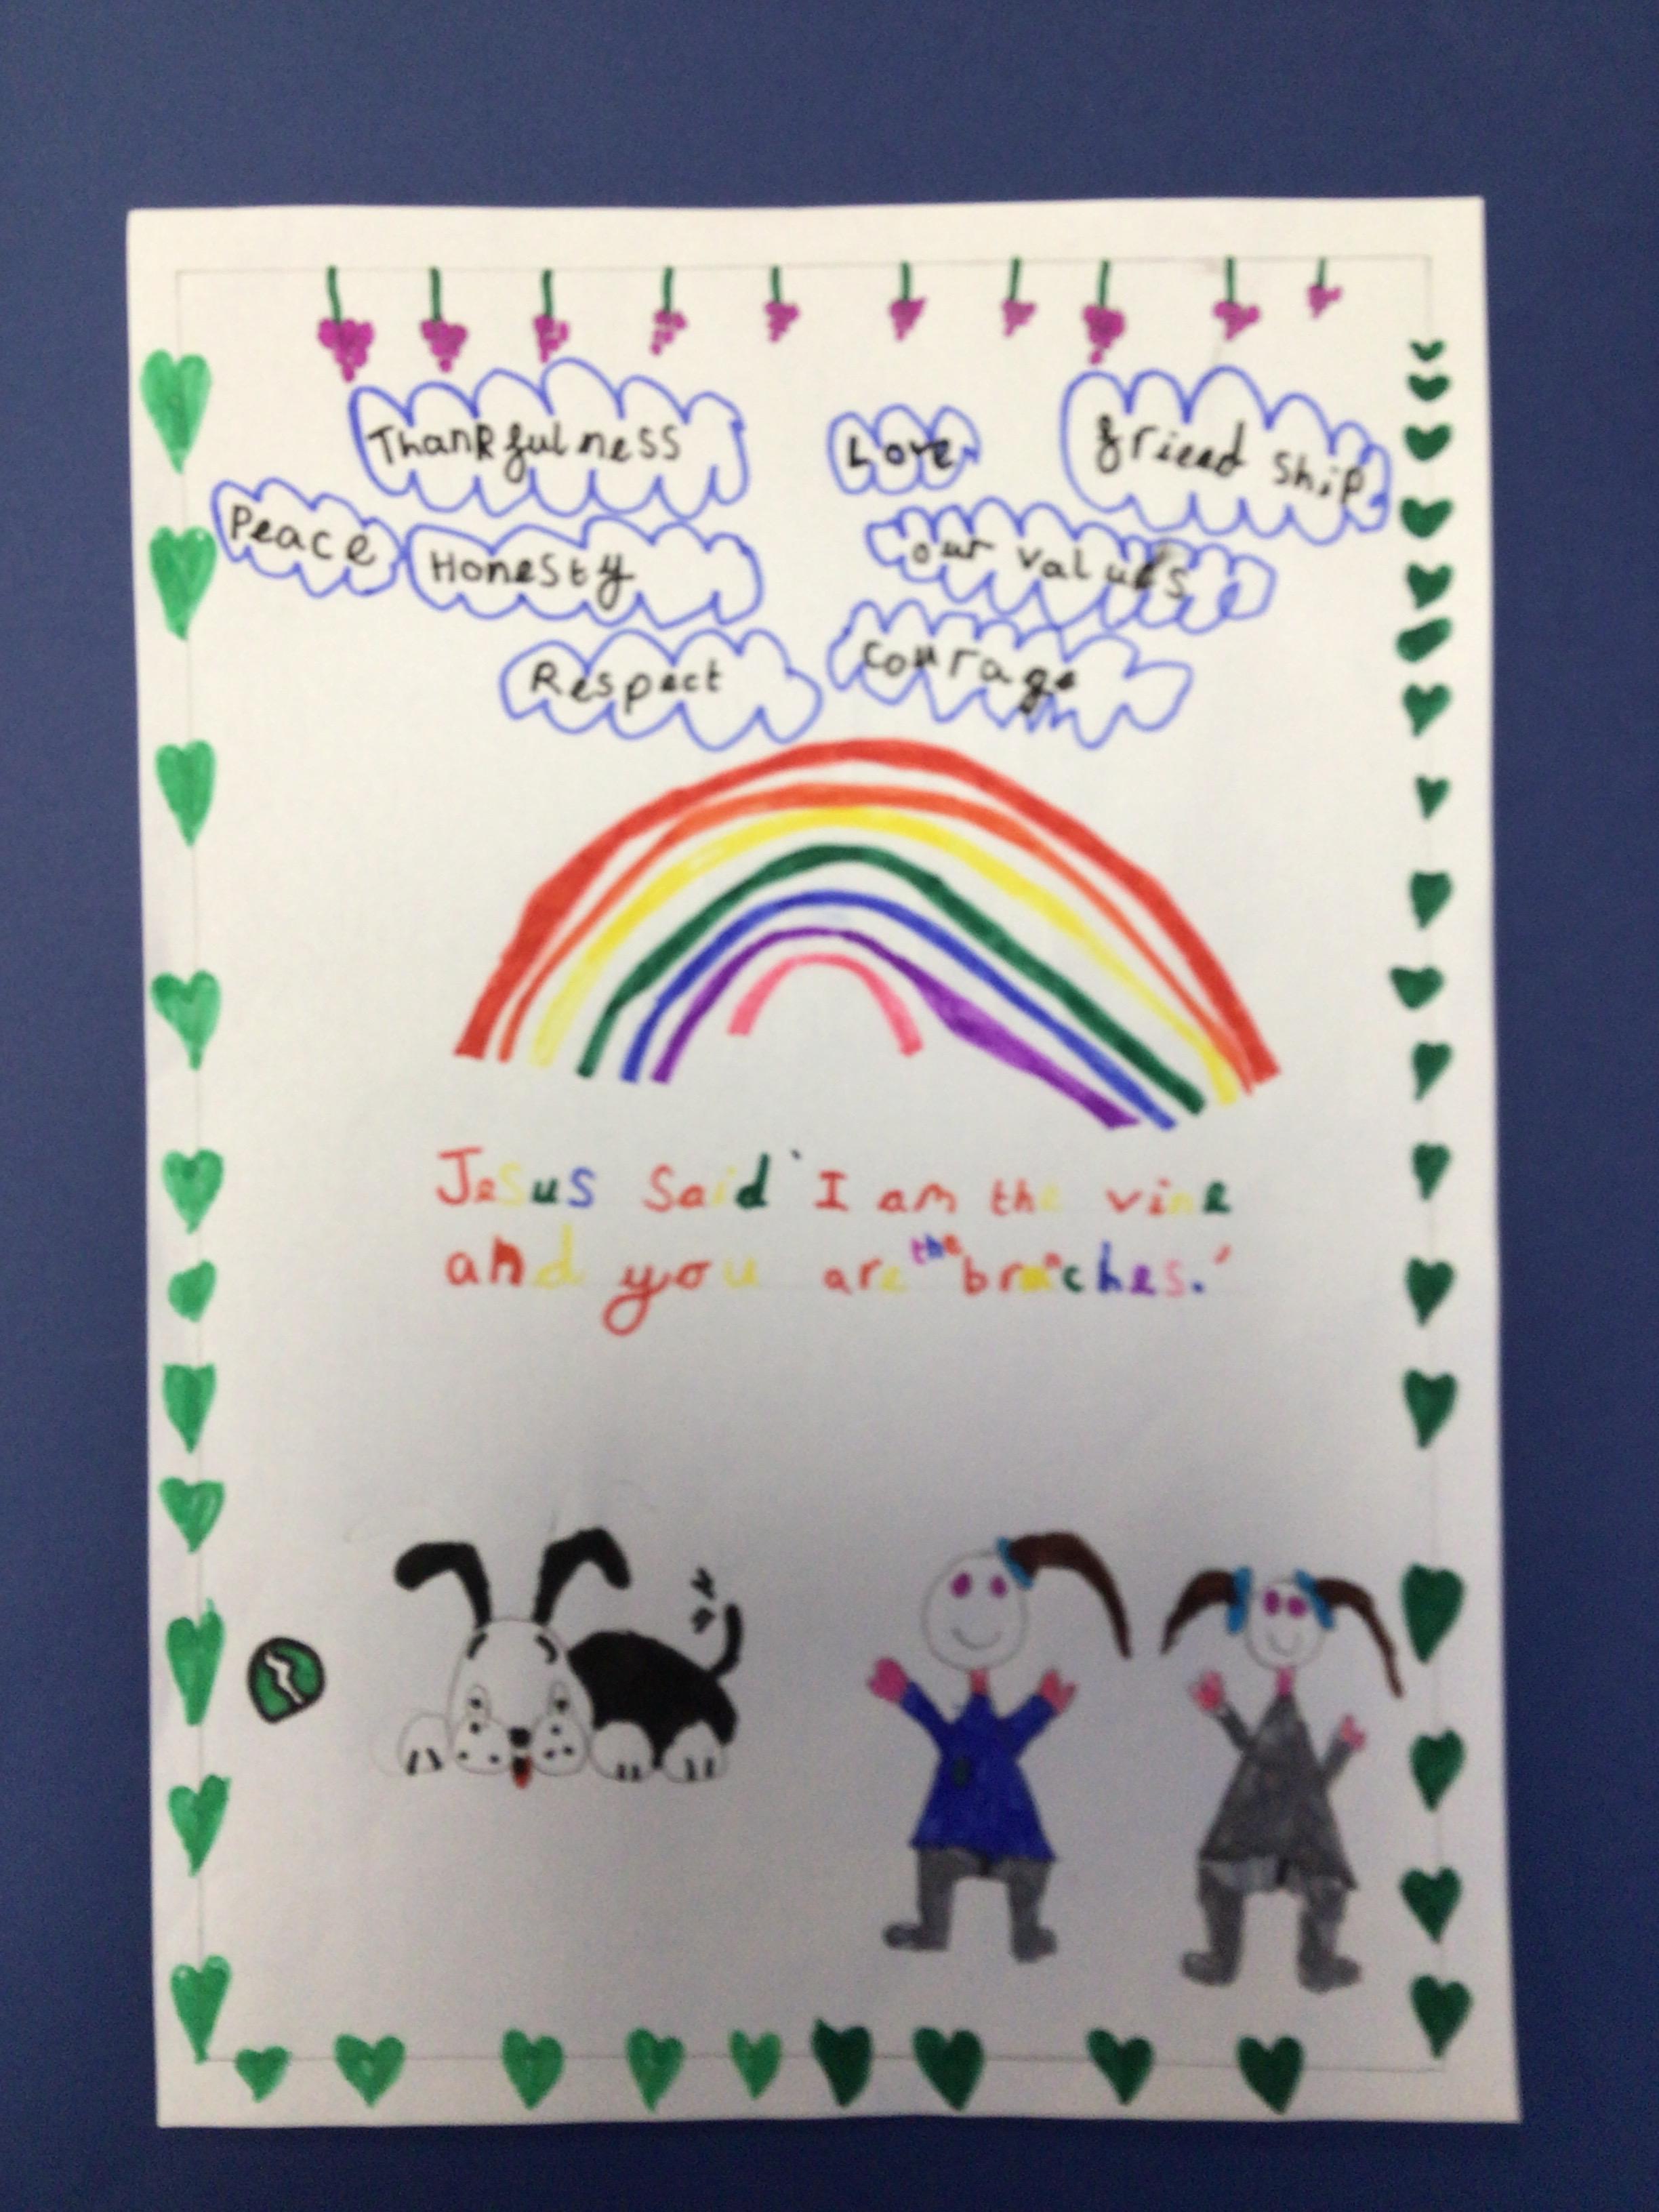 Thankfulness Love friend Ship
Peace Honesty our values
Respect Courage
Jesus Said 'I am the vine
and you are the branches.'